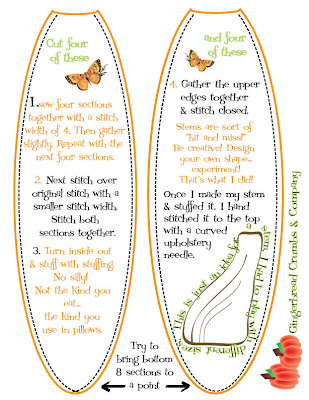 Cut four
of these
1.sew four sections
together with a stitch
width of 4. Then gather
slightly. Repeat with the
next four sections.
2. Next stitch over
original stitch with a
smaller stitch width.
Stitch both
sections together.
3. Turn inside out
& stuff with stuffing.
No silly!
Not the kind you
eat...
the kind you
use in pillows.
and four
of these
4. Gather the upper
edges together
& stitch closed.
Stems are sort of
"hit and miss!"
Be creative! Design
your own shape...
experiment!
That's what I did!
Once I made my stem
& stuffed it. I hand
stitched it to the top
with a curved
upholstery
needle.
This is just an idea for a
stem. I had to play with
different sizes.
Try to
bring bottom
8 sections to
a point
Gingerbread Crumbs & Company